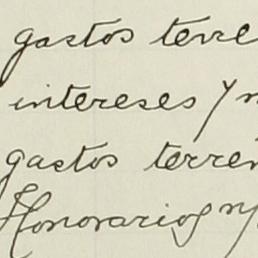 gastos terre
intereses y n
gastos terren
Honorarios n/